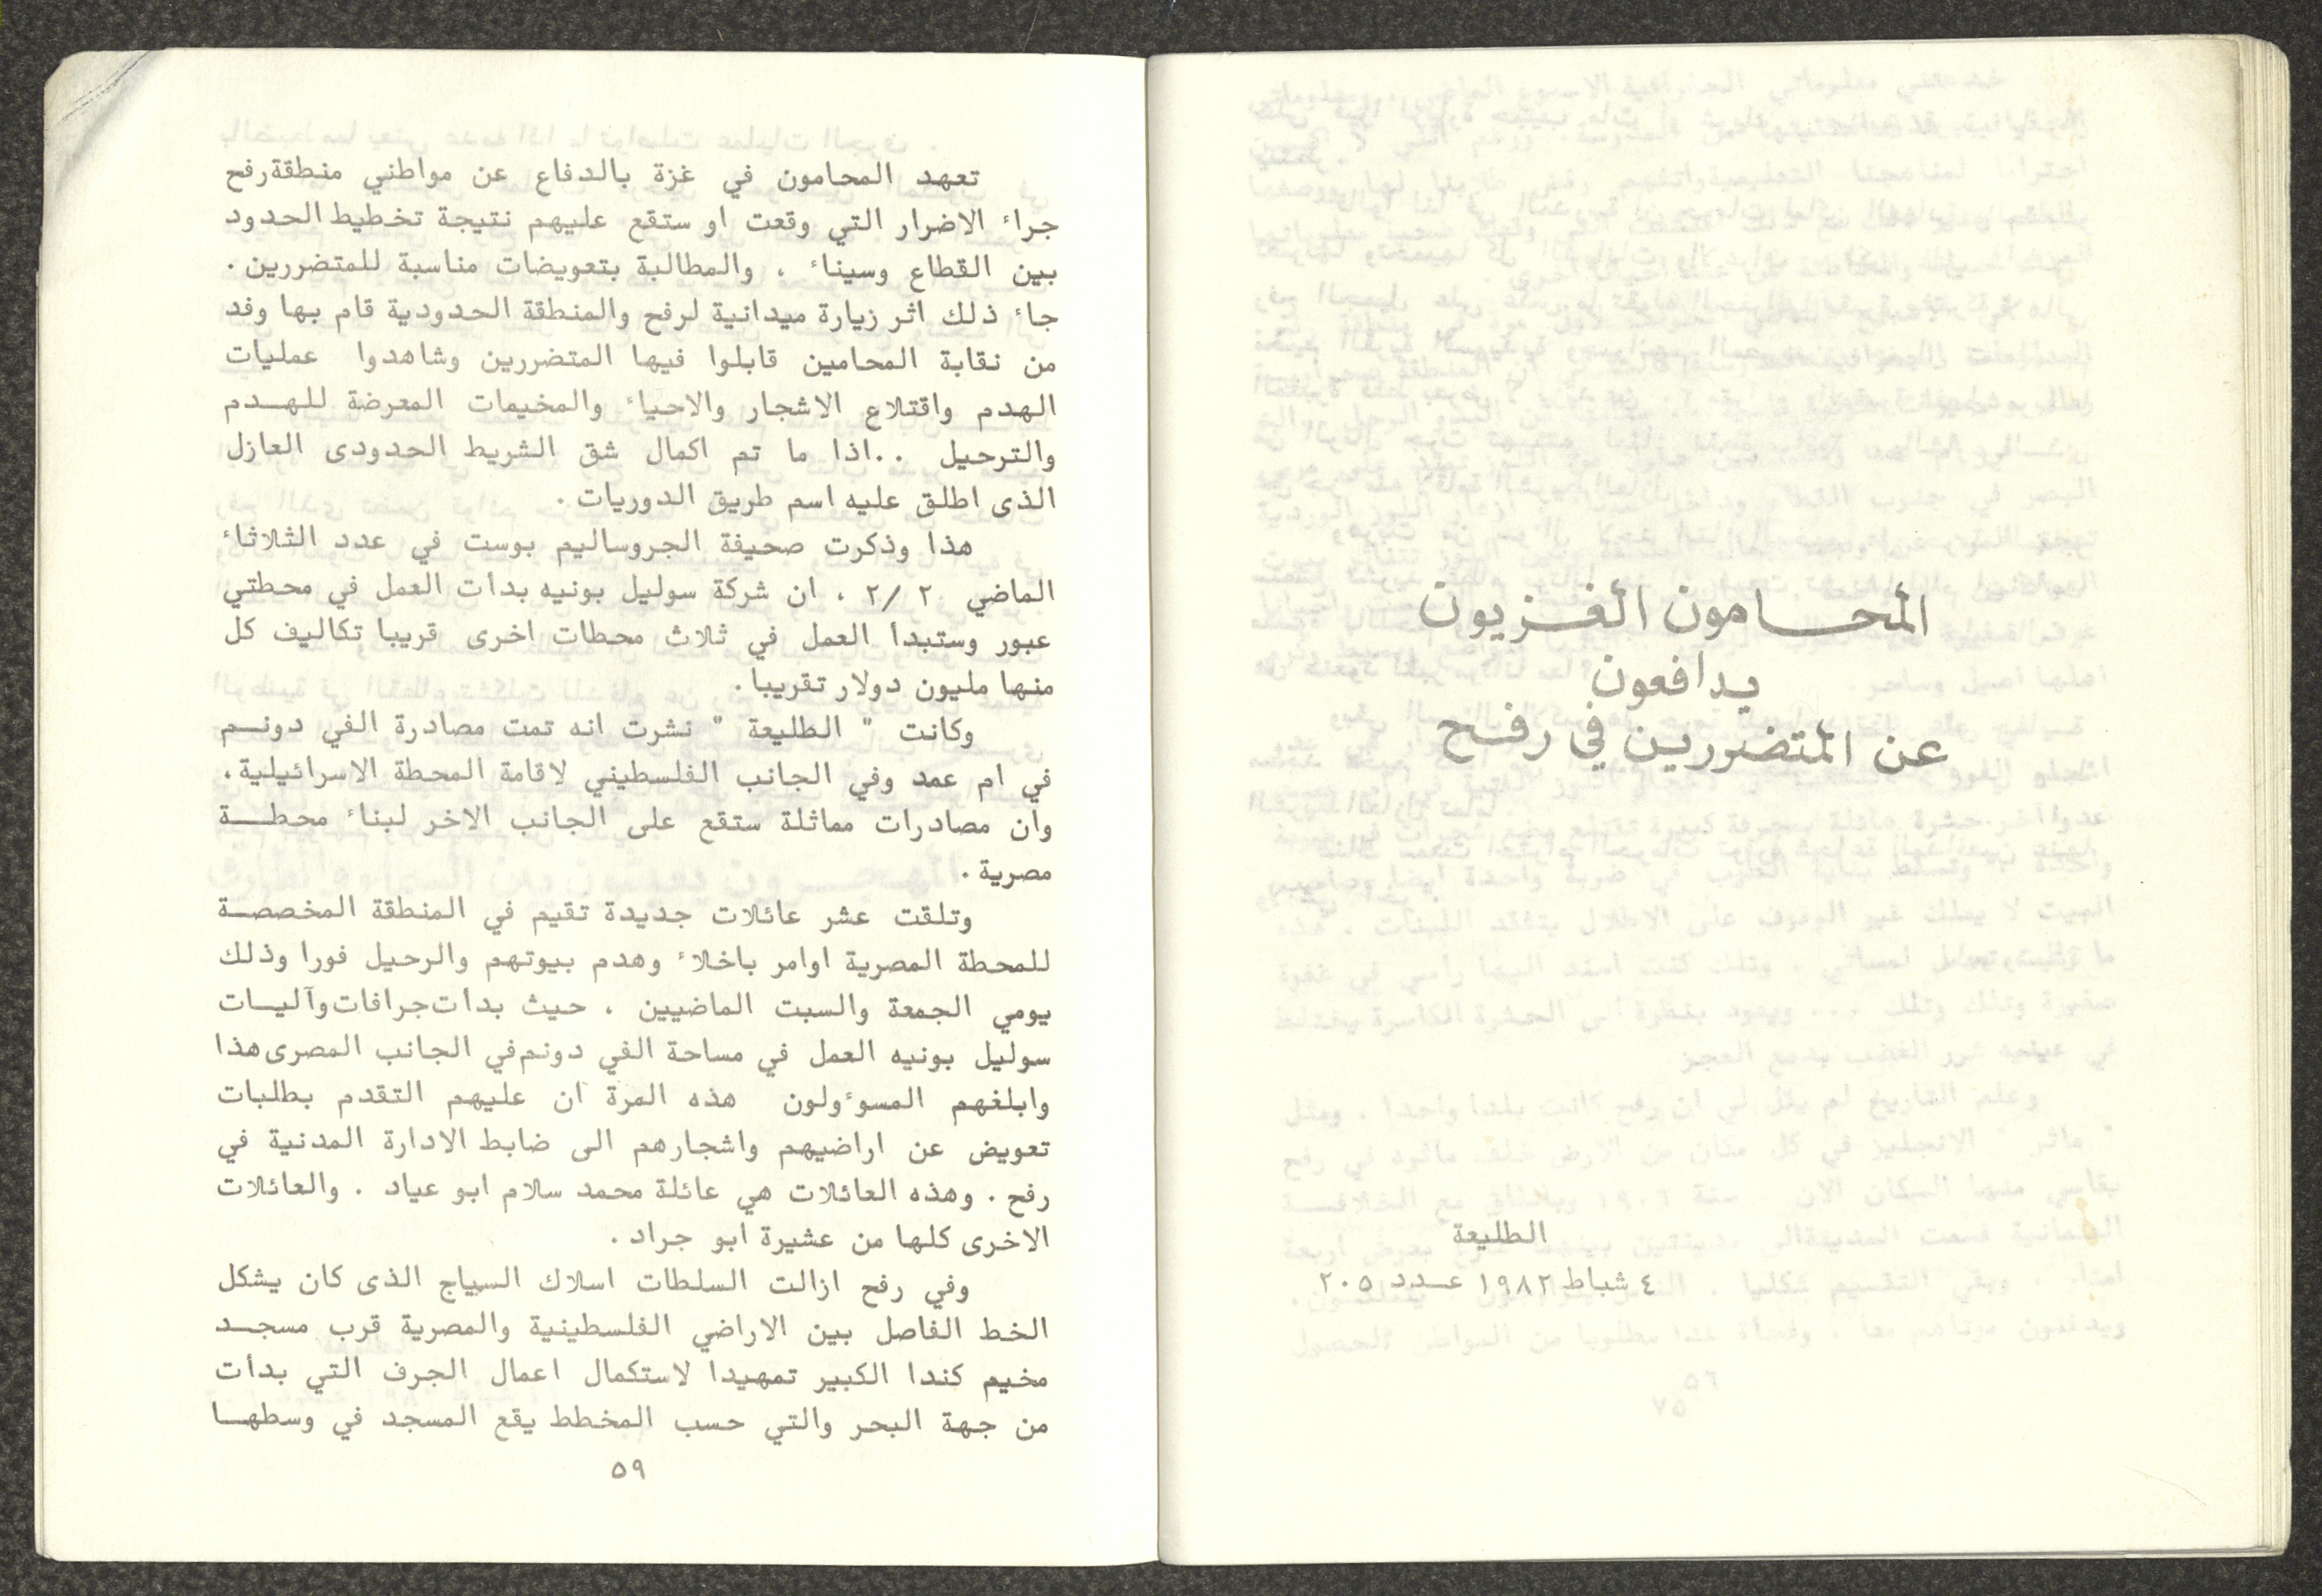 المحامون الغزيون
يدافعون
عن المتضررين في رفح
الطليعة
٤ شباط ١٩٨٢ عدد ٢٠٥
تعهد المحامون في غزة بالدفاع عن مواطني منطقة رفح
جراء الاضرار التي وقعت او ستقع عليهم نتيجة تخطيط الحدود
بين القطاع وسيناء ، والمطالبة بتعويضات مناسبة للمتضررين .
جاء ذلك اثر زيارة ميدانية لرفح والمنطقة الحدودية قام بها وفد
من نقابة المحامين قابلوا فيها المتضررين وشاهدوا عمليات
الهدم واقتلاع الاشجار والاحياء والمخيمات المعرضة للهدم
والترحيل ..اذا ما تم اكمال شق الشريط الحدودى العازل
الذى اطلق عليه اسم طريق الدوريات .
هذا وذكرت صحيفة الجروساليم بوست في عدد الثلاثاء
الماضي ٢/٢ ، ان شركة سوليل بونيه بدأت العمل في محطتي
عبور وستبدأ العمل في ثلاث محطات اخرى قريبا تكاليف كل
منها مليون دولار تقريبا .
وكانت " الطليعة " نشرت انه تمت مصادرة الفي دونم
في ام عمد وفي الجانب الفلسطيني لاقامة المحطة الاسرائيلية ،
وان مصادرات مماثلة ستقع على الجانب الاخر لبناء محطة
مصرية .
وتلقت عشر عائلات جديدة تقيم في المنطقة المخصصة
للمحطة المصرية اوامر باخلاء وهدم بيوتهم والرحيل فورا وذلك
يومي الجمعة والسبت الماضيين ، حيث بدأت جرافات وآليات
سوليل بونيه العمل في مساحة الفي دونم في الجانب المصرى هذا
وابلغهم المسوءولون هذه المرة ان عليهم التقدم بطلبات
تعويض عن اراضيهم واشجارهم الى ضابط الادارة المدنية في
رفح . وهذه العائلات هي عائلة محمد سلام ابو عياد . والعائلات
الاخرى كلها من عشيرة ابو جراد .
وفي رفح ازالت السلطات اسلاك السياج الذى كان يشكل
الخط الفاصل بين الاراضي الفلسطينية والمصرية قرب مسجد
مخيم كندا الكبير تمهيدا لاستكمال اعمال الجرف التي بدأت
من جهة البحر والتي حسب المخطط يقع المسجد في وسطها
٥٩